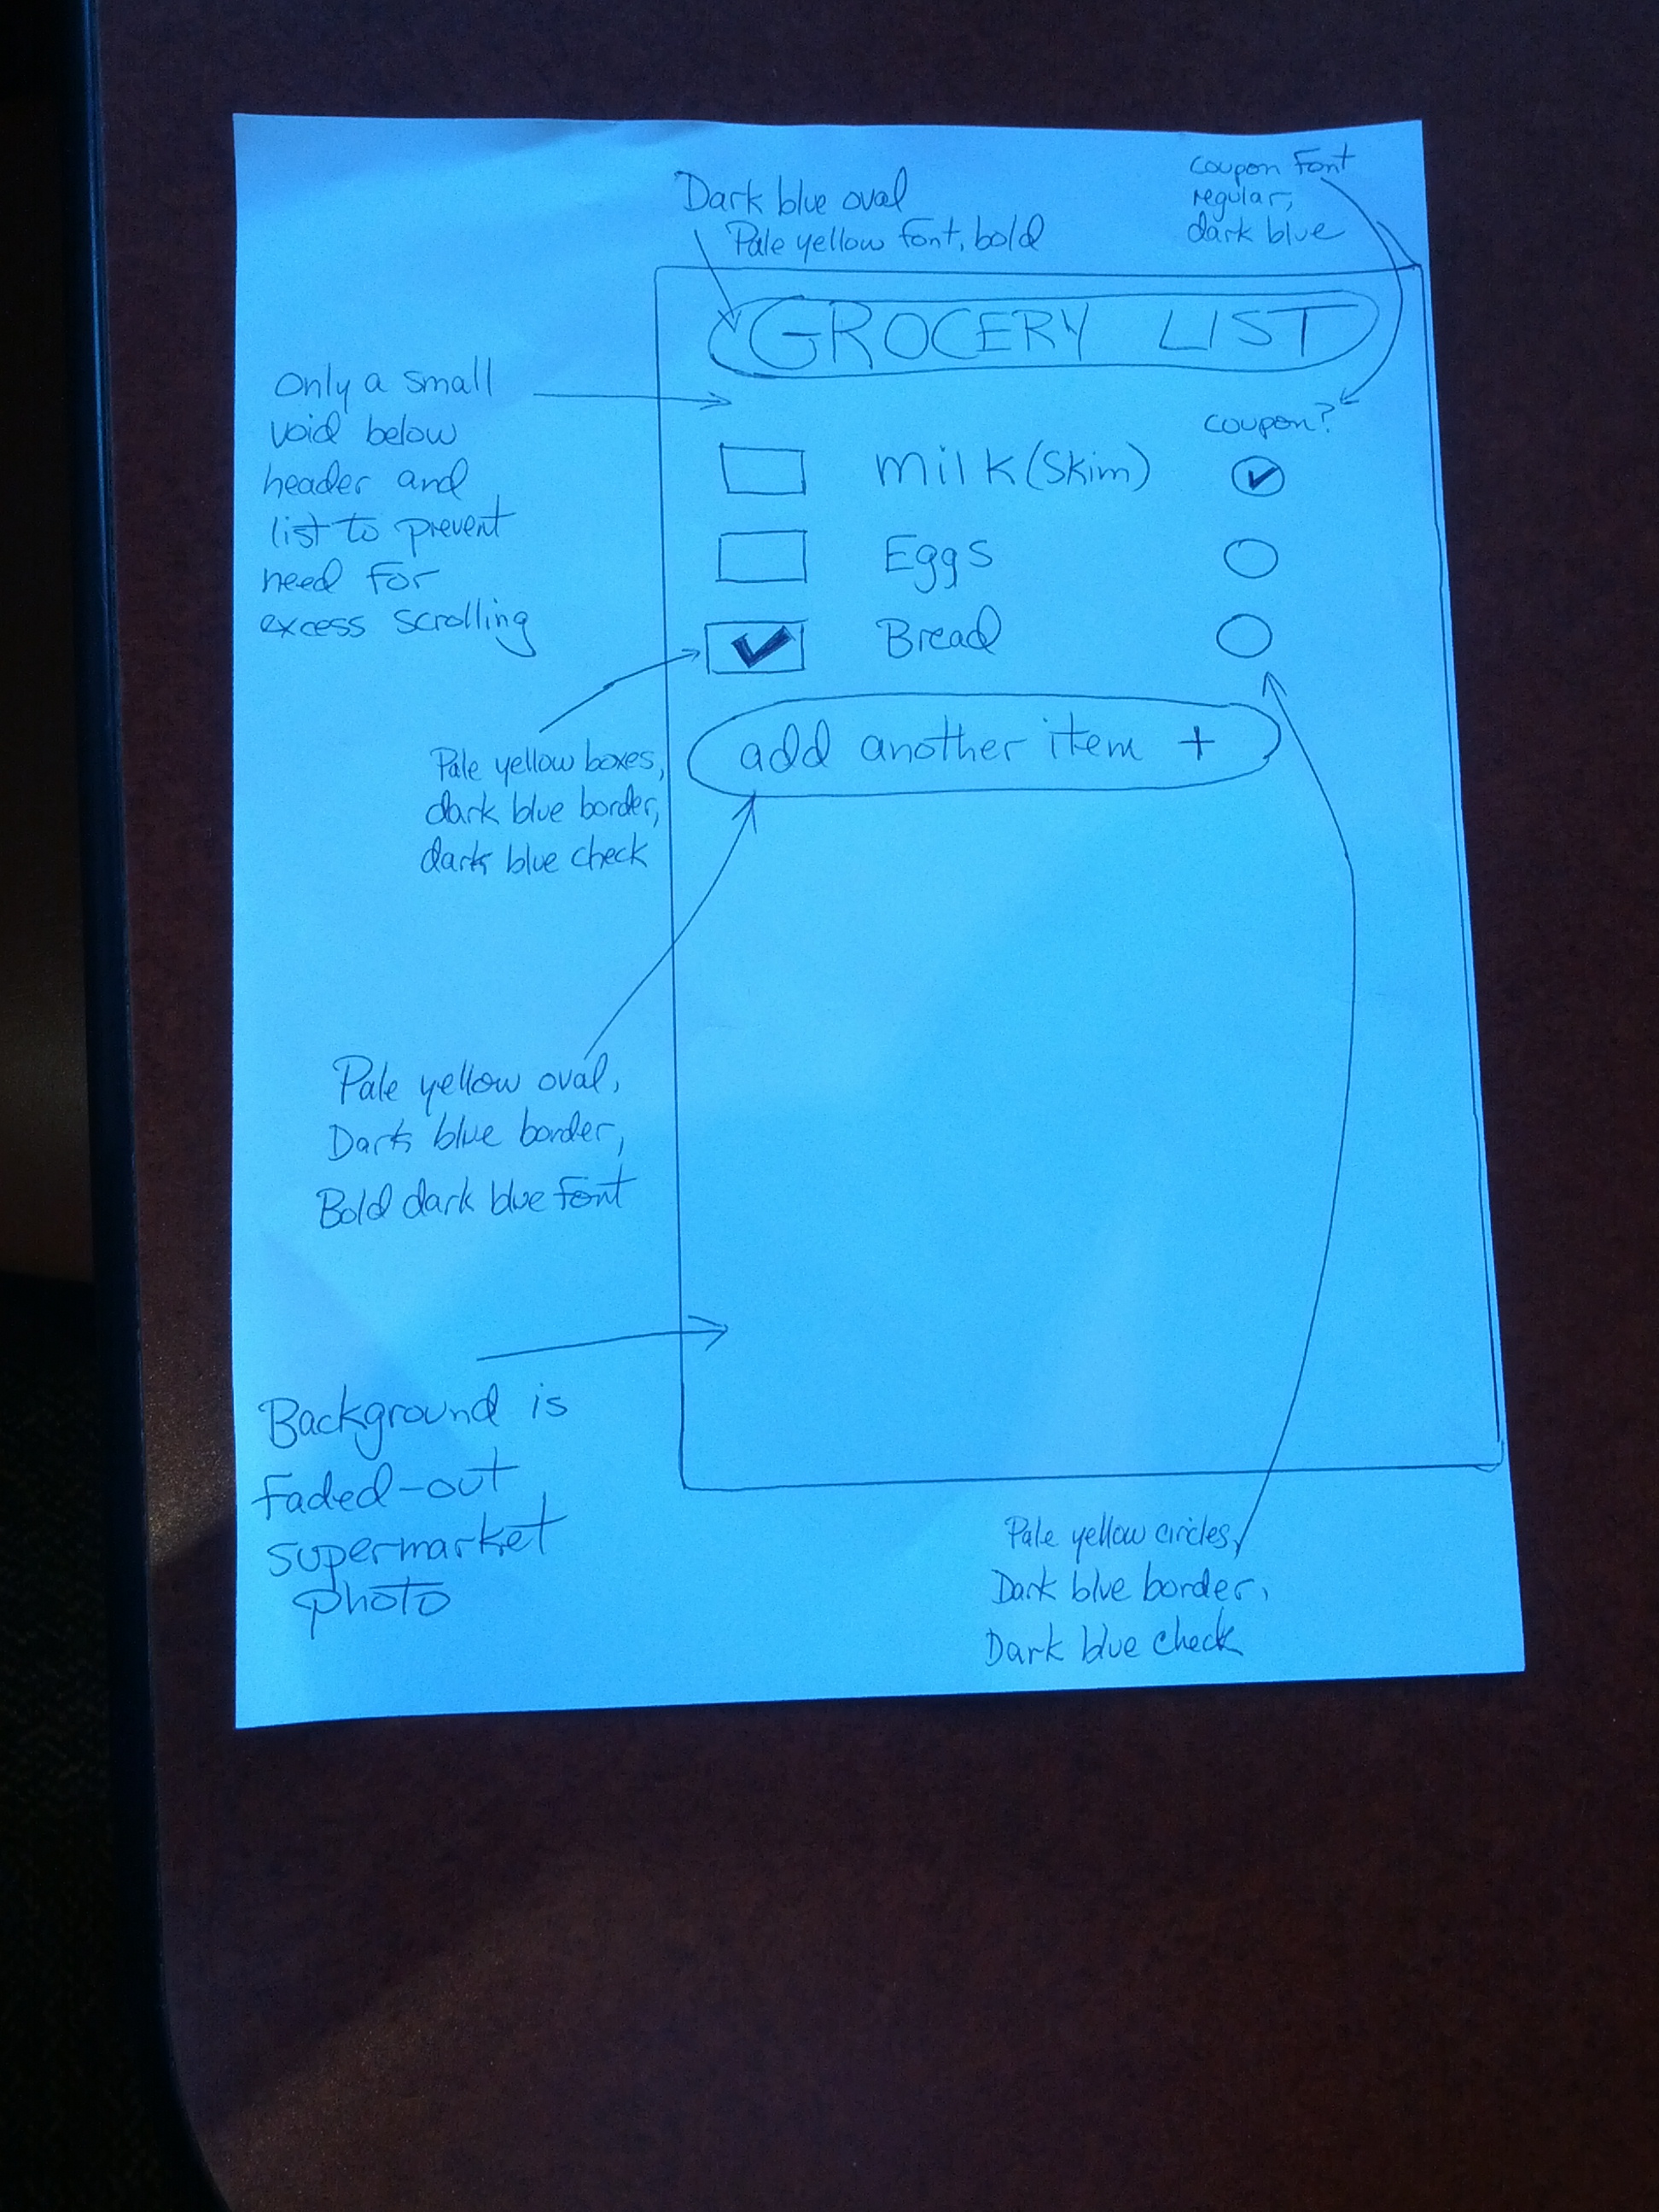 Dark blue oval
Pale yellow font, bold
coupon font
regular,
dark blue
GROCERY LIST
Only a small
void below
header and
list to prevent
need for
excess scrolling
coupon?
milk (skim)
Eggs
Bread
add another item +
Pale yellow boxes,
dark blue border,
dark blue check
Pale yellow oval,
Dark blue border,
Bold dark blue font
Background is
faded-out
supermarket
photo
Pale yellow circles,
Dark blue border,
Dark blue check